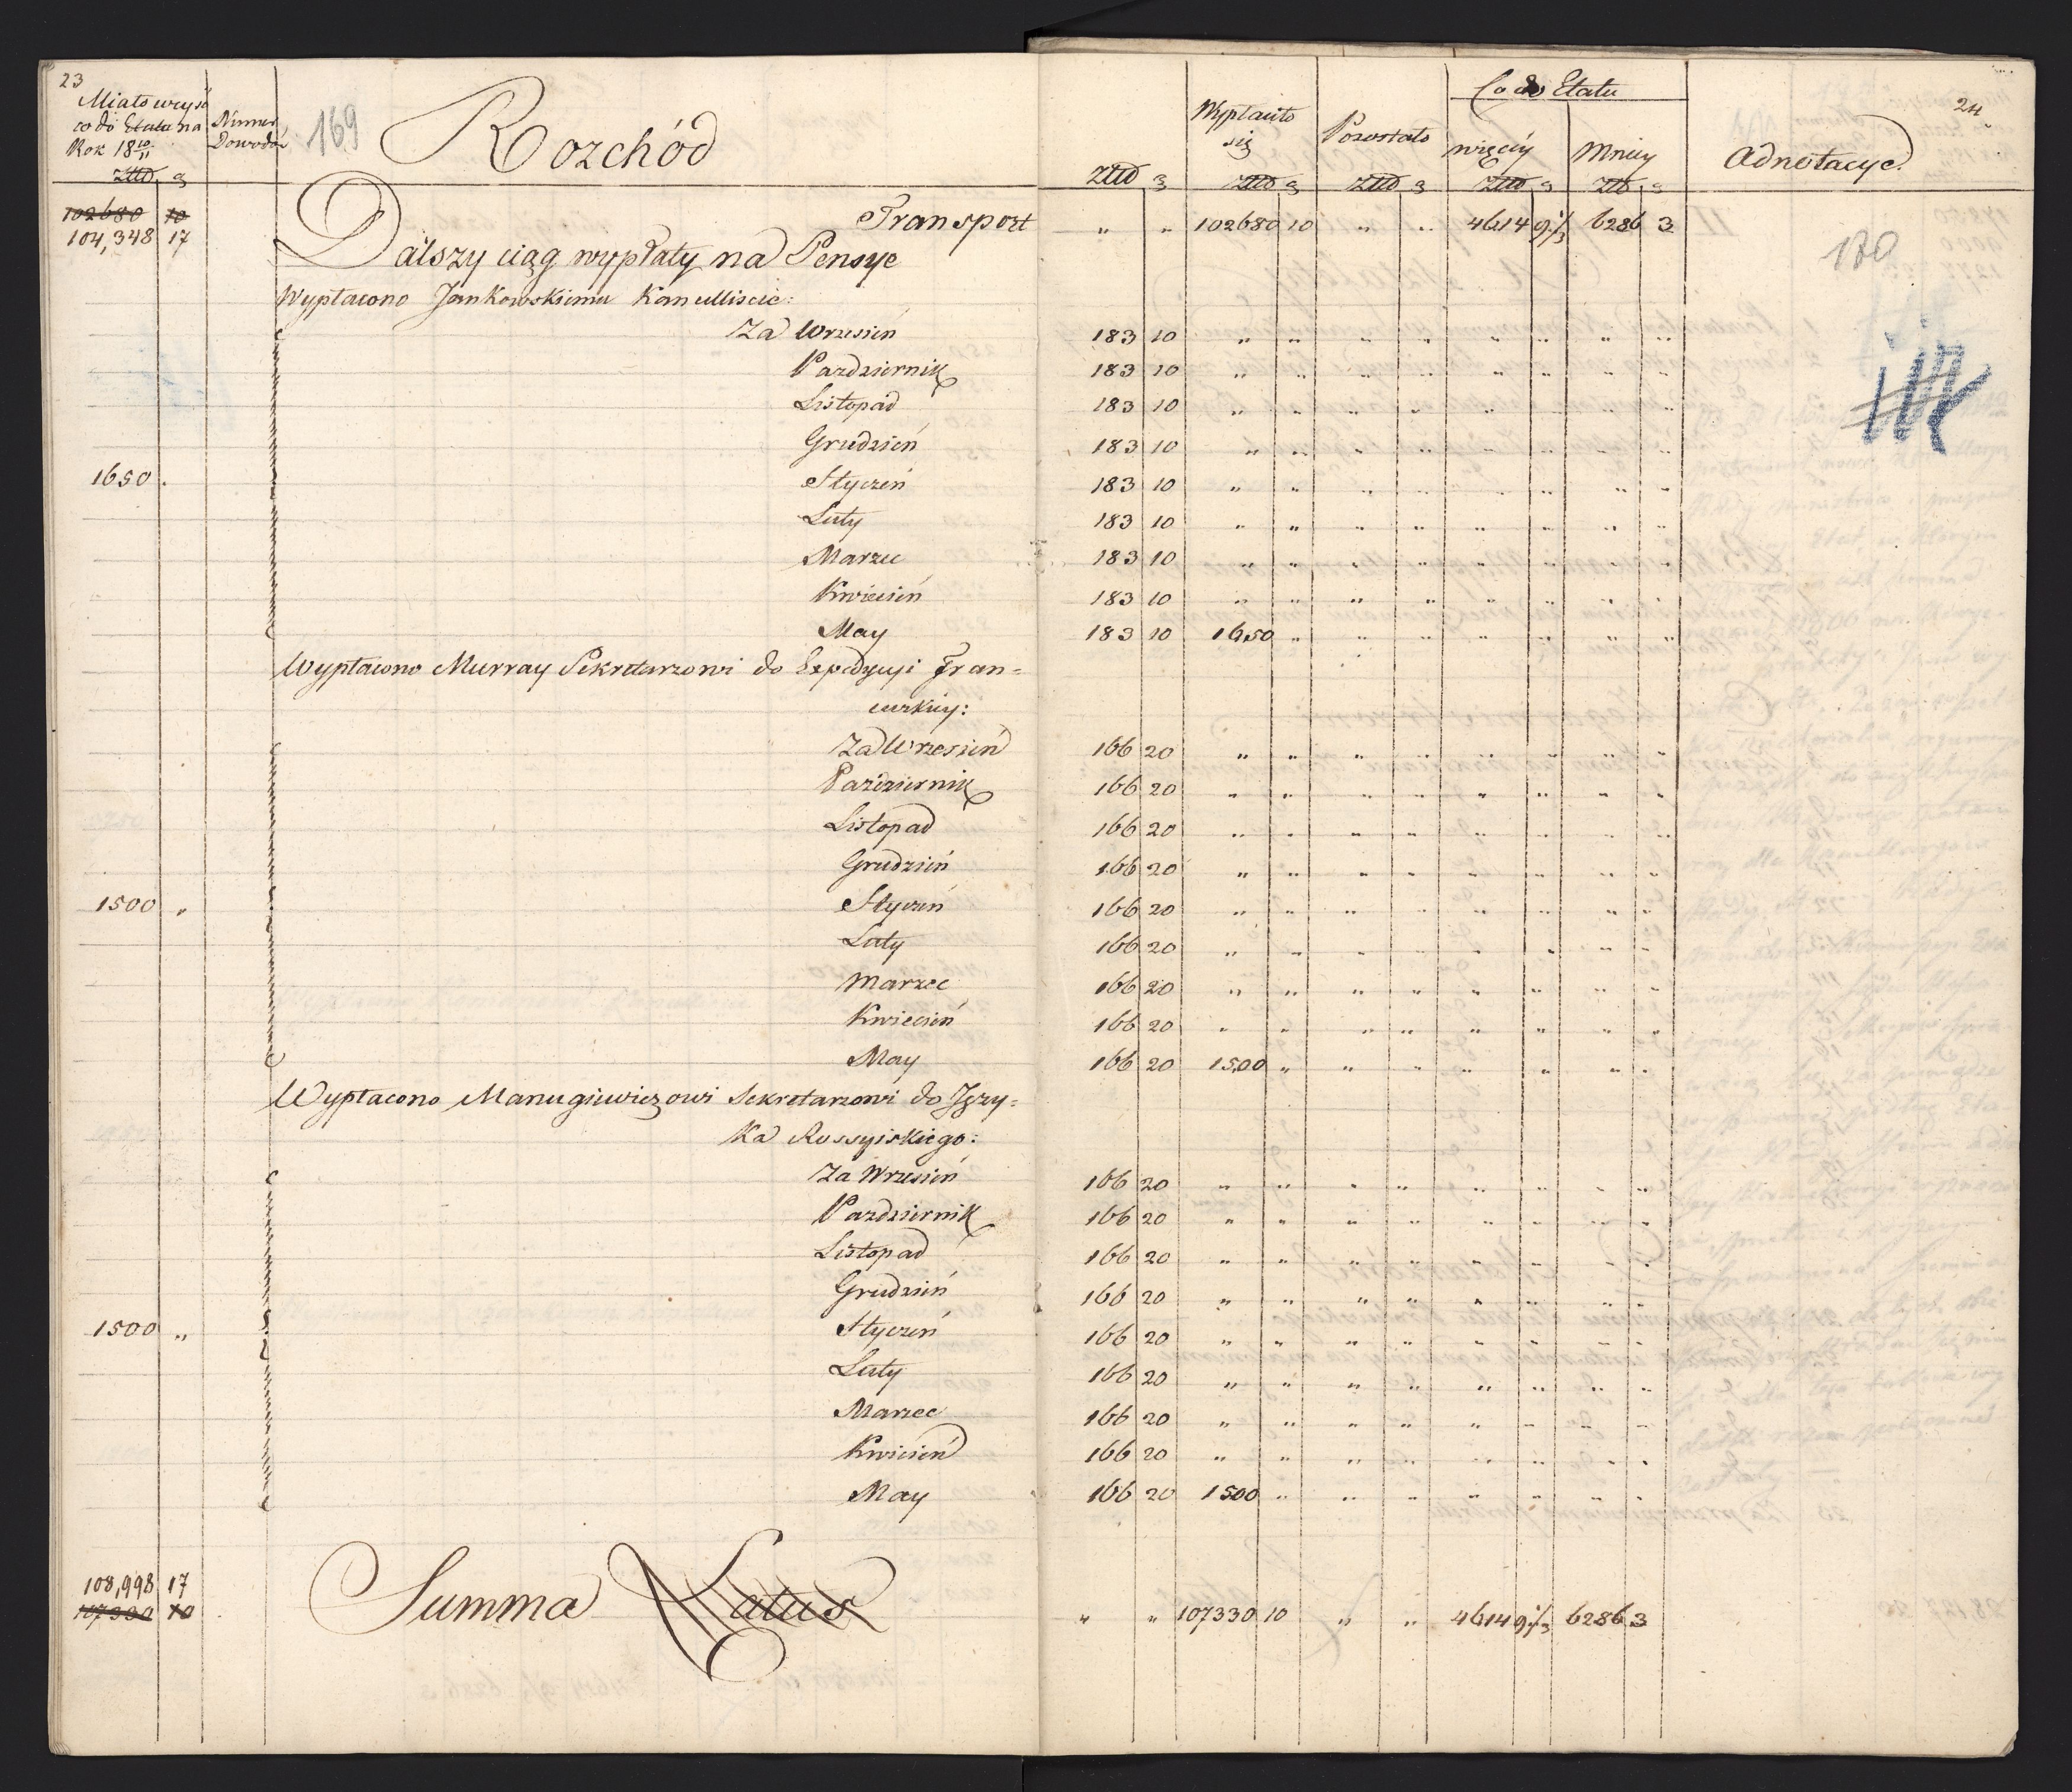 23
Miało wyjść
co do Etatu na
Rok 18 10/11
Złł gr
Numer
Dowodów
169
Rozchód
102680 10
104,348 17
Transport
Dalszy ciąg wypłaty na Pensye
Wypłacono Jankowskiemu Kancelliscie:
Za Wrzesień
Pazdziernik
Listopad
Grudzień
1650 .
Styczeń
Luty
Marzec
Kwiecień
May
Wypłacono Murray Sekretarzowi do Expedycyi Fran=
cuzkiey:
Za Wrzesień
Pazdziernik
Listopad
Grudzień
1500 "
Styczeń
Luty
Marzec
Kwiecień
May
Wypłacono Manugiewiczowi Sekretarzowi do Języ=
ka Rossyiskiego:
Za Wrzesień
Pazdziernik
Listopad
Grudzień
1500 "
Styczeń
Luty
Marzec
Kwiecień
May
108,998 17
107330 10
Summa Latus
24
Złł gr
Wypłaciło
się
Złł gr
Pozostało
Złł gr
Co do Etatu
więcéy
Złł gr
Mniéy
Złł gr
Adnotacye
170
" " 102680 10 " " 4614 9 1/3 6286 3
183 10 " " " " " " " "
183 10 " " " " " " " "
183 10 " " " " " " " "
183 10 " " " " " " " "
183 10 " " " " " " " "
183 10 " " " " " " " "
183 10 " " " " " " " "
183 10 " " " " " " " "
183 10 1650 " " " " " " "
166 20 " " " " " " " "
166 20 " " " " " " " "
166 20 " " " " " " " "
166 20 " " " " " " " "
166 20 " " " " " " " "
166 20 " " " " " " " "
166 20 " " " " " " " "
166 20 " " " " " " " "
166 20 1500 " " " " " " "
166 20 " " " " " " " "
166 20 " " " " " " " "
166 20 " " " " " " " "
166 20 " " " " " " " "
166 20 " " " " " " " "
166 20 " " " " " " " "
166 20 " " " " " " " "
166 20 " " " " " " " "
166 20 1500 " " " " " " "
" " 107330 10 " " 4614 9 1/3 6286 3